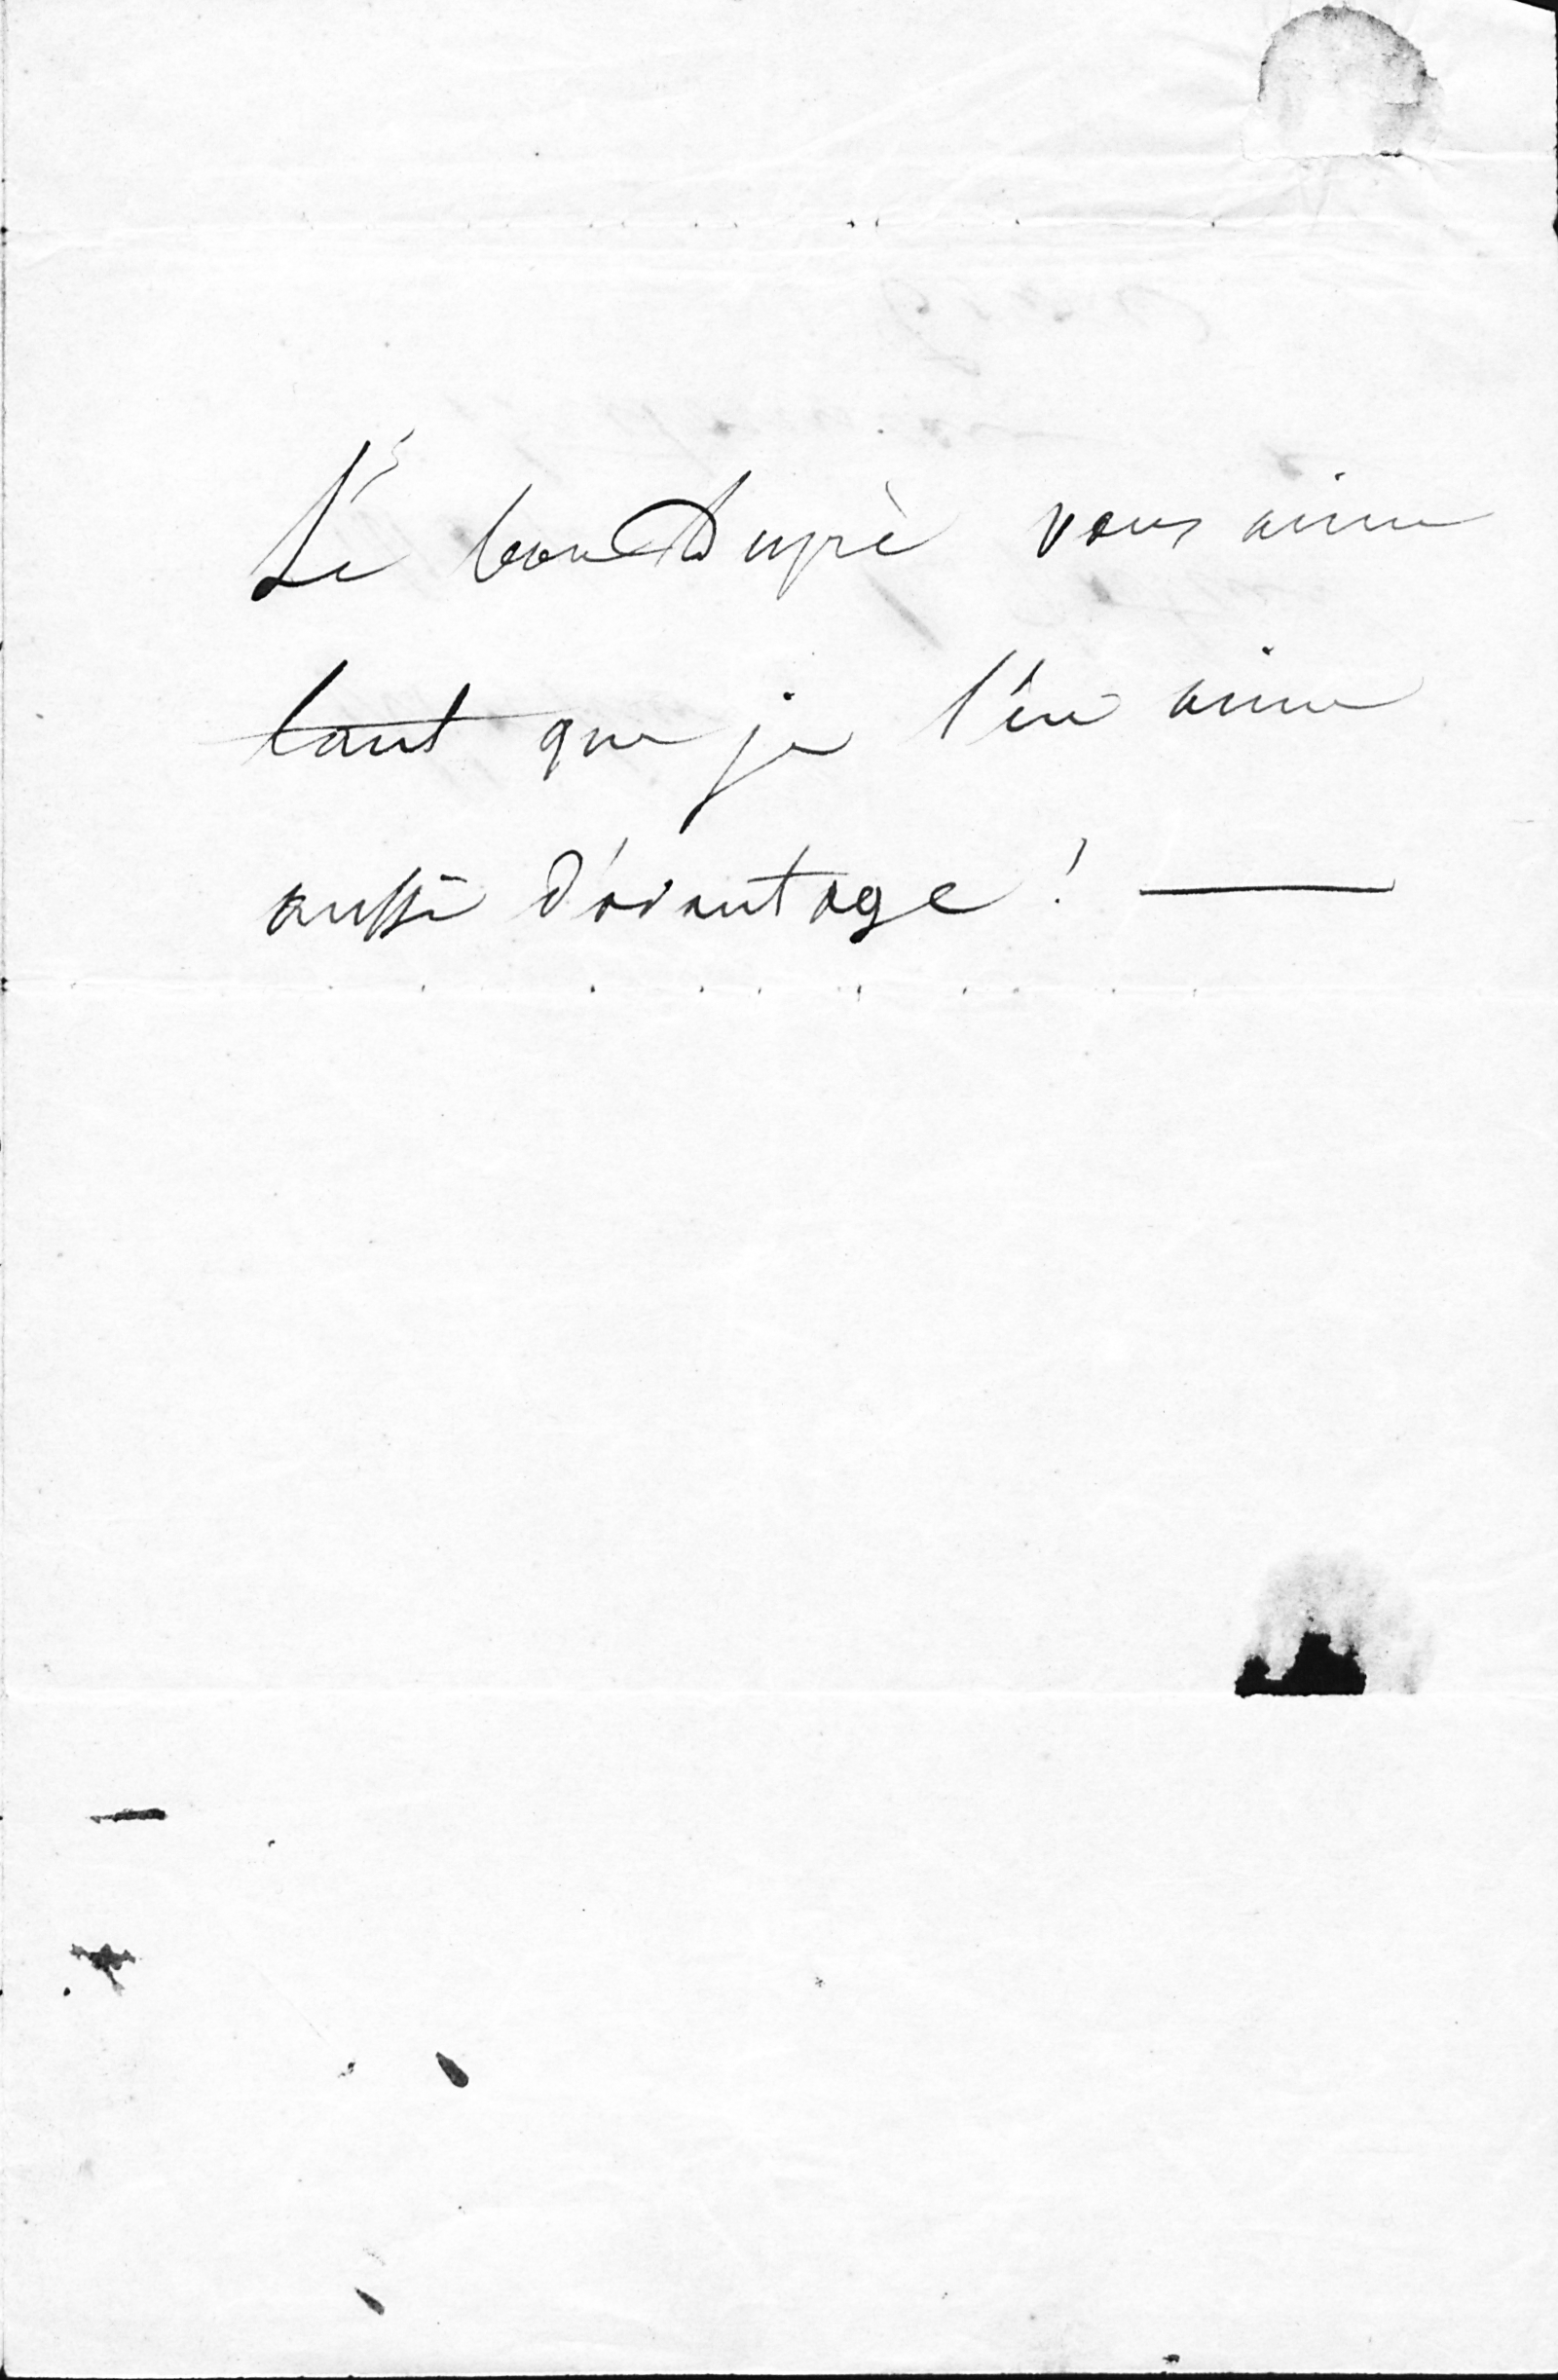 Le bon Duprè vous aime
tant que je l'en aime
aussi d'avantage ! —